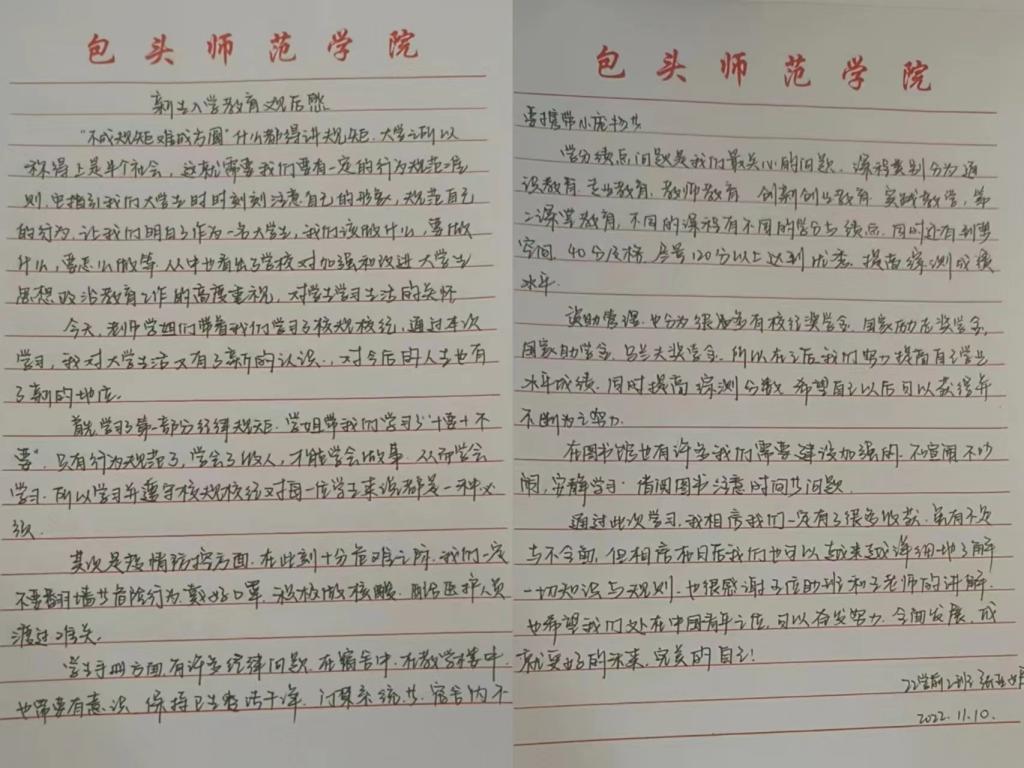 包头师范学院
新生入学教育观后感
"不成规矩难成方圆"什么都得讲规矩.大学之所以
称得上是半个社会，这就需要我们要有一定的行为规范准
则.来指引我们大学生时时刻刻注意自己的形象，规范自己
的行为，让我们明白了作为一名大学生，我们该做什么，要做
什么，要怎么做等.从中也看出了学校对加强和改进大学生
思想政治教育工作的高度重视，对学生学习生活的关怀
今天，老师学姐们带着我们学习了校规校纪，通过本次
学习，我对大学生活又有了新的认识.，对今后的人生也有
了新的地位。
首先学习了第一部分纪律规矩.学姐带我们学习了"十要十不
要".只有行为规范了，学会了做人，才能学会做事.从而学会
学习.所以学习并遵守校规校纪对每一位学生来说都是一种必
须.
其次是疫情防控方面.在此刻十分危难之际.我们一定
不要翻墙等危险行为.戴好口罩.积极做核酸.配合医护人员
渡过难关。
学生手册方面.有许多纪律问题.在宿舍中.在教学楼中.
也需要有意识.保持卫生整洁干净.门禁系统等.宿舍内不
包头师范学院
要携带小宠物等
学分绩点问题是我们最关心的问题.课程类别分为通
识教育.专业教育.教师教育.创新创业教育.实践教学，第
二课堂教育，不同的课程有不同的学分与绩点.同时还有到梦
空间.40分及格.合号120分以上达到优秀.提高综测成绩
水平.
资助管理.也分为很多有校级奖学金.国家励志奖学金.
国家助学金.乌兰夫奖学金.所以在之后我们努力提高自己学业
水平成绩.同时提高综测分数.希望自己以后可以获得并
不断为之努力.
在图书馆也有许多我们需要建设加强的.不喧闹不吵
闹，安静学习.借阅图书注意时间等问题.
通过此次学习.我相信我们一定有了很多收获.虽有不足
与不全面，但相信在日后我们也可以越来越详细地了解
一切知识与规则.也很感谢各位助班和各老师的讲解.
也希望我们处在中国青年之位.可以奋发努力.全面发展.成
就更好的未来，完美的自己！
22学前2班
2022.11.10.